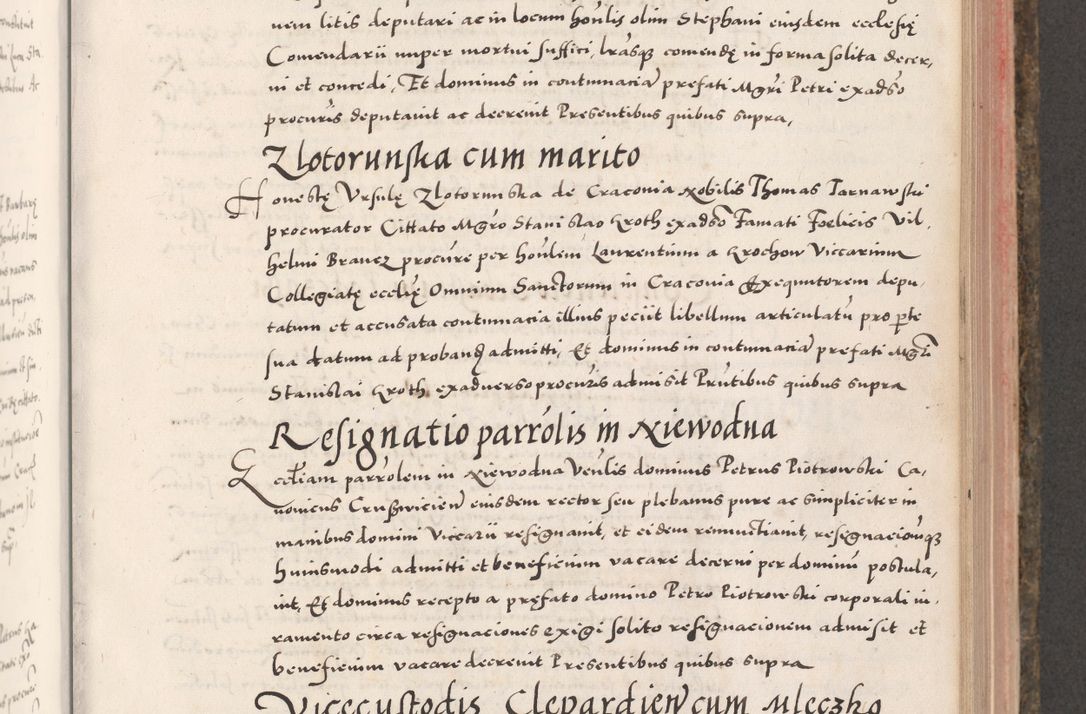 nem litis deputari ac in locum hon̄lis olim Stephani eiusdem ecclesię
Comendarii nuper mortui suffici, lr̄asq̨ comendę in forma solita decer,
ni et concedi, Et dominus in contumaciā prefati Mgr̄i Petri ex adso
procur̄is deputauit ac decreuit Presentibus quibus supra,
Zlotorunska cum marito
Honestę Vrsulę Zlotorunska de Craconia Nobilis Thomas Tarnawski
procurator Cittato Mgr̄o Stanislao Kroth ex adso Famati Foelicis Vil,
helmi Brancz procur̄e per hon̄lem Laurentium a Krochow Viccarium
Collegiatę ecclię Omnium Sanctorum in Craconia Exequutorem depu,
tatum et accusata contumacia illius peciit libellum articulatū pro p̄te
sua datum ad probanḋ admitti, Et dominus in contumaciā prefati Mgr̄i
Stanislai Kroth ex aduerso procur̄is admisit Prn̄tibus quibus supra
Resignatio parr̄olis in Niewodna
Ecct̄iam parr̄olem in Niewodna Ven̄lis dominus Petrus Piotrowski Ca,
nonicus Cruswicień eiusdem rector seu plebanus pure ac simpliciter in
manibus domini Viccarii resignauit, et eidem renunctiauit, resegnacionq̨
huiusmodi admitti et beneficium vacare decerni per dominū postula,
uit, Et dominus recepto a pręfato domino Petro Piotrowski corporali iu,
ramento circa resignaciones exigi solito resignacionem admisit et
beneficium vacare decreuit Presentibus quibus supra
Vicecustodis Clepardień cum Mleczko